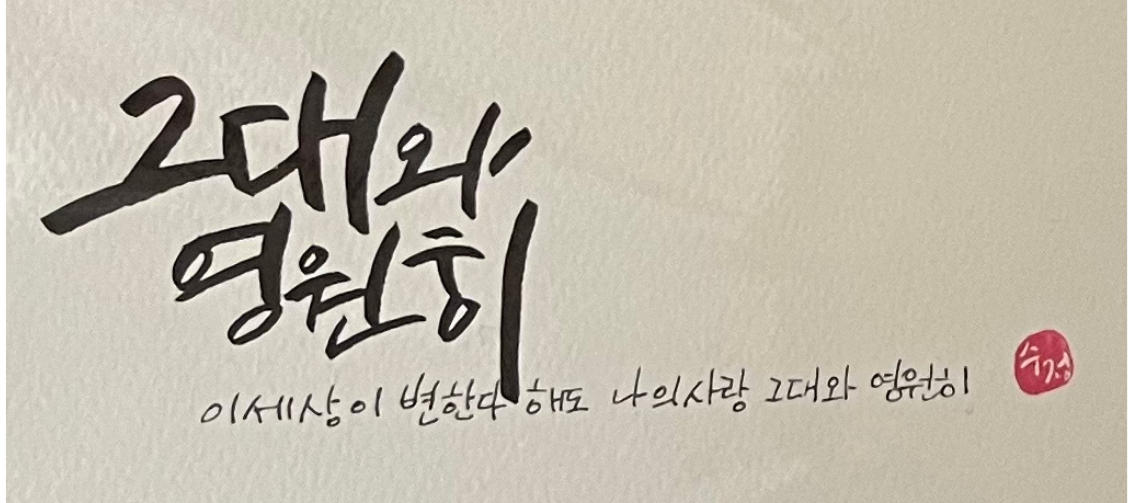 그대와
영원히
이세상이 변한다 해도 나의사랑 그대와 영원히
수정